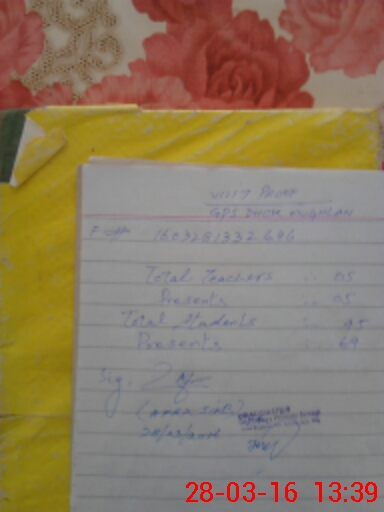 VISIT PROFF
GPS DHOK MUGHLAN
F # 1603281332696
Total Teachers : 05
Presents : 05
Total Students : 95
Presents : 69
Sig.
28/03/2016
28-03-16 13:39